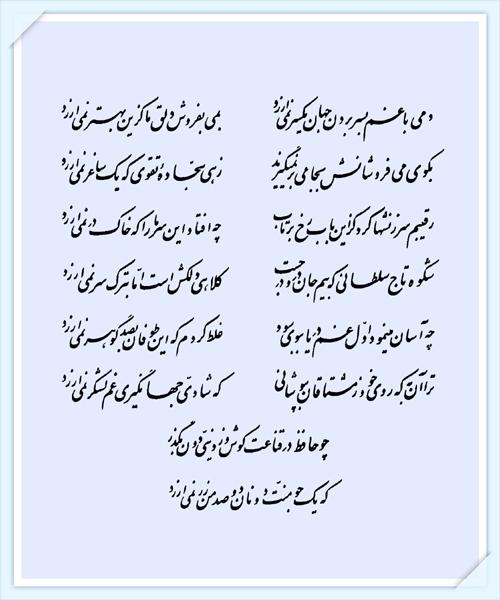 دمی با غم بسر بردن جهان یکسر نمی‌ارزد بمی بفروش دلق ما کزین بهتر نمی‌ارزد
بکوی می فروشانش بجامی بر نمیگیرند زهی سجاده تقوی که یک ساغر نمی‌ارزد
رقیبم سرزنشها کرد کزین باب رخ برتاب چه افتاد این سر ما را که خاک در نمی‌ارزد
شکوه تاج سلطانی که بیم جان درو درجست کلاهی دلکش است اما بترک سر نمی‌ارزد
چه آسان مینمود اول غم دریا ببوی سود غلط کردم که این طوفان بصد گوهر نمی‌ارزد
ترا آن به که روی خود ز مشتاقان بپوشانی که شادی جهانگیری غم لشکر نمی‌ارزد
چو حافظ در قناعت کوش و ز دنیی دون بگذر
که یک جو منت دونان دو صد من زر نمی‌ارزد